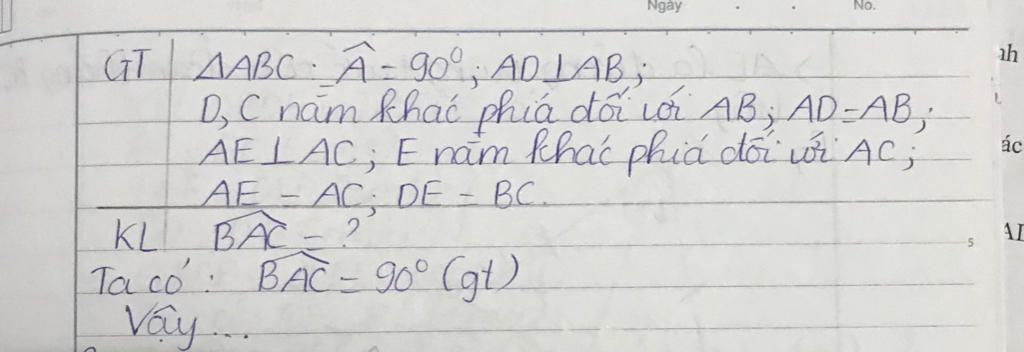 Ngày . . No.
GT ΔABC: Â = 90⁰; AD⊥AB;
D, C nằm khác phía đối với AB; AD=AB;
AE⊥AC; E nằm khác phía đối với AC;
AE = AC; DE = BC.
KL BAC = ?
Ta có: BAC = 90⁰ (gt)
Vậy...
5
ác